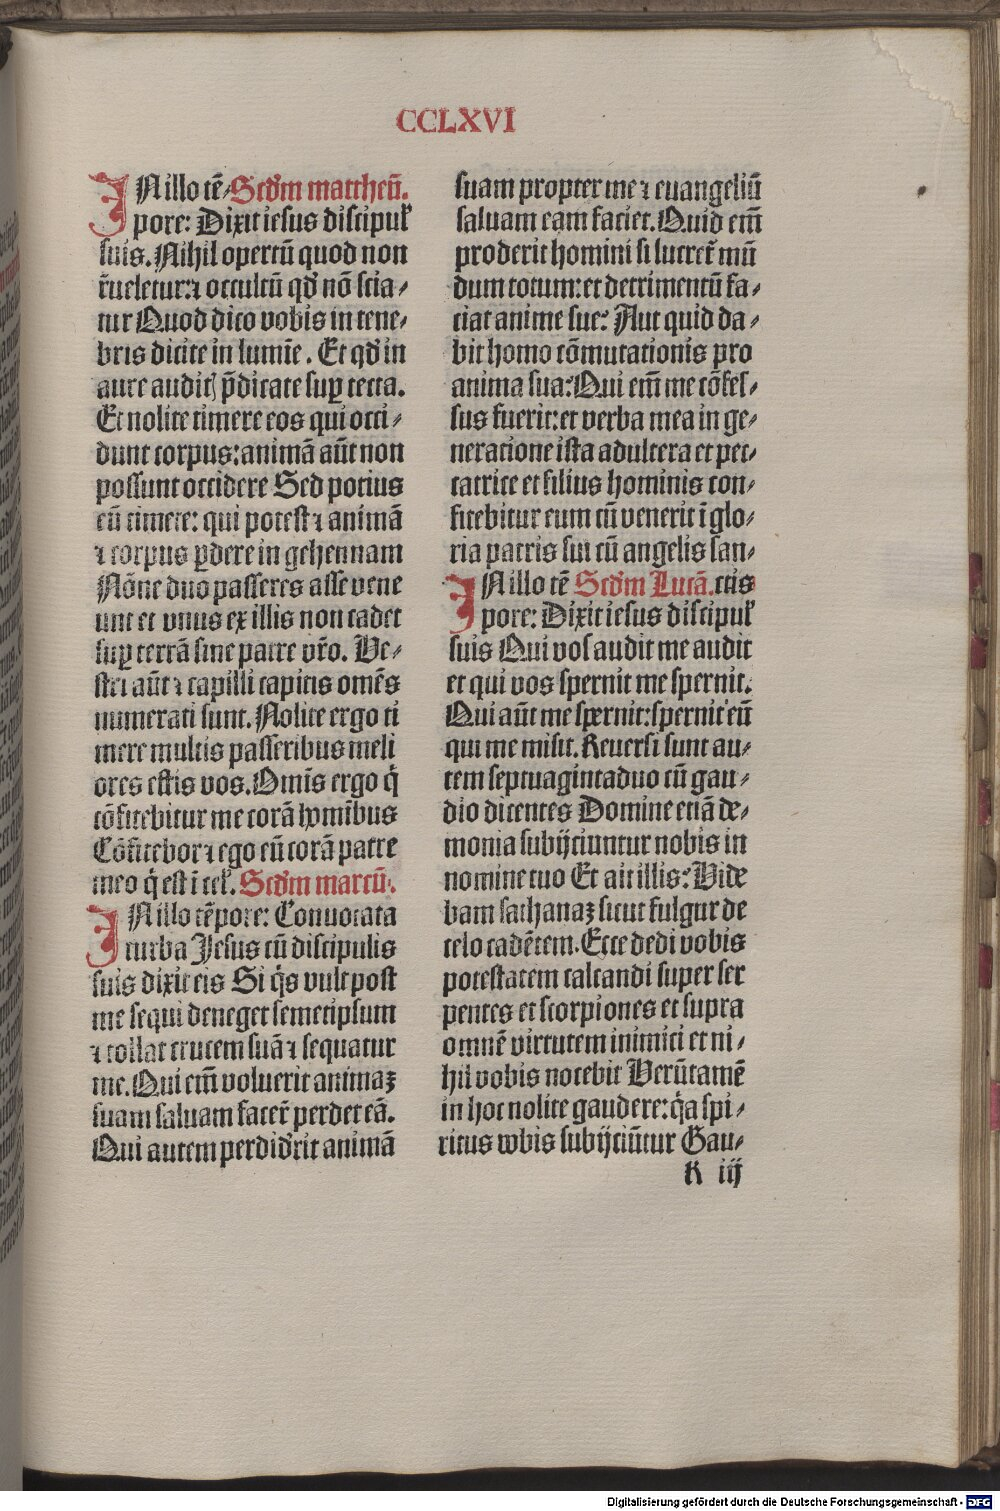 CCLXVI
IN illo tē- Scd̄m mattheū.
pore: Dixit iesus discipul̓
suis. Nihil opertū quod non
r̄ueletur: ⁊ occultū qd̄ nō scia-
tur Quod dico vobis in tene-
bris dicite in lumīe. Et qd̄ in
aure auditꝭ p̄dicate suꝑ tecta.
Et nolite timere eos qui occi-
dunt corpus: animā aūt non
possunt occidere Sed potius
eū timete: qui potest ⁊ animā
⁊ corpus ꝑdere in gehennam
Nōne duo passeres asse vene
unt et vnus ex illis non cadet
suꝑ terrā sine patre vr̄o. Ve-
stri aūt ⁊ capilli capitis omēs
numerati sunt. Nolite ergo ti
mere multis passeribus meli
ores estis vos. Omīs ergo q̄
cōfitebitur me corā homībus
Cōfitebor ⁊ ego eū corā patre
meo q̄ est ī cel̓. Scd̄m marcū.
IN illo tēpore: Conuocata
turba Jesus cū discipulis
suis dixit eis Si q̄s vult post
me sequi deneget semetipsum
⁊ tollat crucem suā ⁊ sequatur
me. Qui em̄ voluerit animaꝫ
suam saluam facer̄ perdet eā.
Qui autem perdid̓rit animā
suam propter me ⁊ euangeliū
saluam eam faciet. Quid em̄
proderit homini si lucret̄ mū
dum totum: et detrimentū fa-
ciat anime sue? Aut quid da-
bit homo cōmutationis pro
anima sua? Qui em̄ me cōfes-
sus fuerit: et verba mea in ge-
neratione ista adultera et pec-
catrice et filius hominis con-
fitebitur eum cū venerit ī glo-
ria patris sui cū angelis san-
IN illo tē Scd̄m Lucā. ctis
pore: Dixit iesus discipul̓
suis Qui vos audit me audit
et qui vos spernit me spernit.
Qui aūt me spernit: spernit eū
qui me misit. Reuersi sunt au-
tem septuagintaduo cū gau-
dio dicentes Domine etiā de-
monia subijciuntur nobis in
nomine tuo Et ait illis: Vide
bam sathanaꝫ sicut fulgur de
celo cadētem. Ecce dedi vobis
potestatem calcandi super ser
pentes et scorpiones et supra
omnē virtutem inimici et ni-
hil vobis nocebit Verūtamē
in hoc nolite gaudere: q̄a spi-
ritus vobis subijciūtur Gau-
K iij
Digitalisierung gefördert durch die Deutsche Forschungsgemeinschaft - DFG